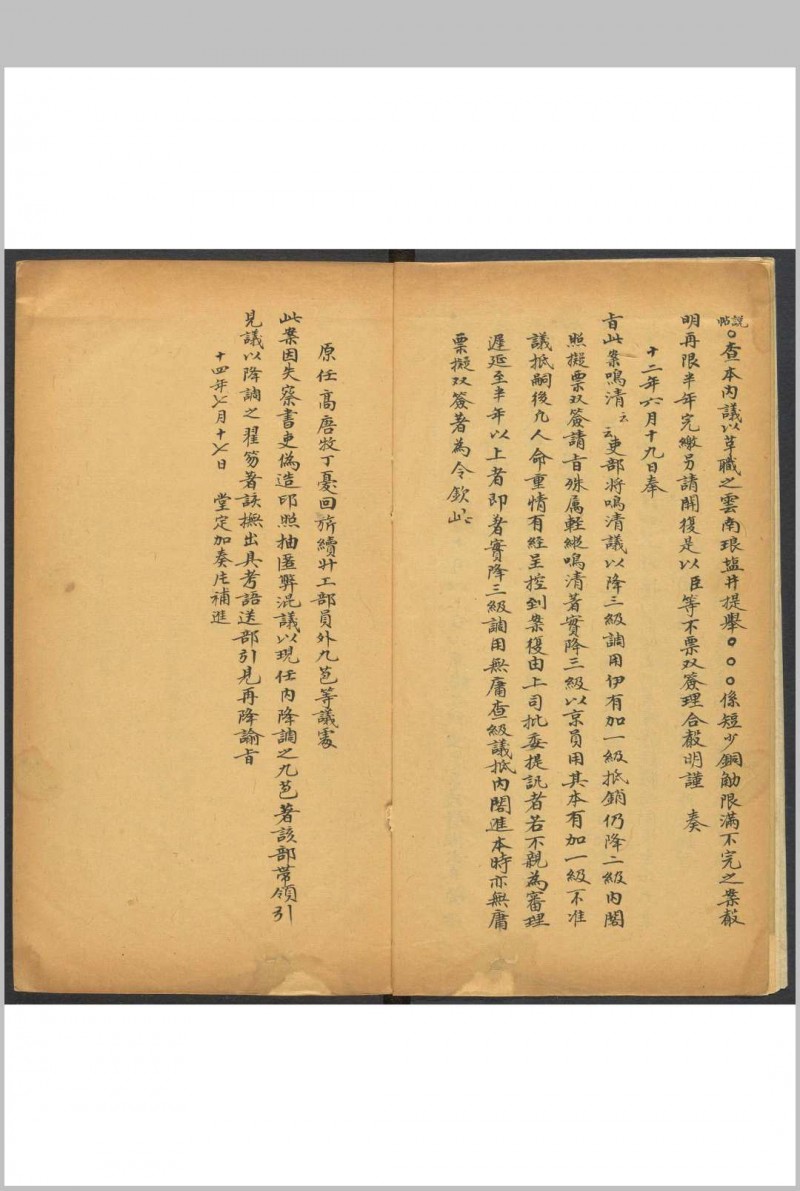 說帖
○查本內議以革職之雲南琅塩井提舉○○○係短少銅觔限滿不完之案敍
明再限半年完繳另請開復是以臣等不票双簽理合敍明謹 奏
十二年六月十九日奉
旨此案鳴清云云吏部將鳴清議以降三級調用伊有加一級抵銷仍降二級內閣
照擬票双簽請旨殊屬輕縱鳴清著實降三級以京員用其本有加一級不准
議抵嗣後凡人命重情有經呈控到案復由上司批委提訊者若不親為審理
遲延至半年以上者即著實降三級調用無庸查級議抵內閣進本時亦無庸
票擬双簽著為令欽此
原任高唐牧丁憂回旂續升工部員外九芭等議處
此案因失察書吏偽造印照抽匿弊混議以現任內降調之九芭著該部帶領引
見議以降調之翟笏著該撫出具考語送部引見再降諭旨
十四年七月十七日 堂定加奏片補進